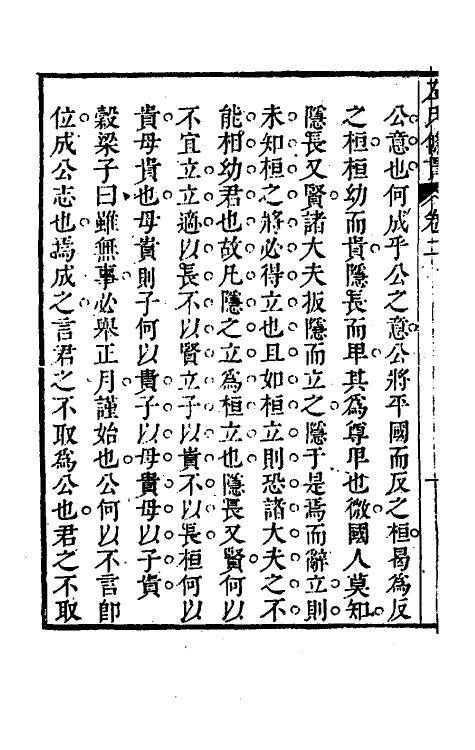 公意也何成乎公之意公將平國而反之桓曷為反
之桓桓幼而貴隱長而卑其為尊卑也微國人莫知
隱長又賢諸大夫扳隱而立之隱于是焉而辭立則
未知桓之將必得立也且如桓立則恐諸大夫之不
能相幼君也故凡隱之立為桓立也隱長又賢何以
不宜立立適以長不以賢立子以貴不以長桓何以
貴母貴也母貴則子何以貴子以母貴母以子貴
穀梁子曰雖無事必舉正月謹始也公何以不言即
位成公志也焉成之言君之不取為公也君之不取